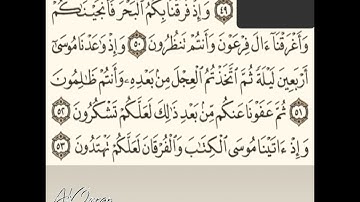 ٤٩ وَإِذْ فَرَقْنَا بِكُمُ ٱلْبَحْرَ فَأَنجَيْنَٰكُمْ
وَأَغْرَقْنَآ ءَالَ فِرْعَوْنَ وَأَنتُمْ تَنظُرُونَ ٥٠ وَإِذْ وَٰعَدْنَا مُوسَىٰٓ
أَرْبَعِينَ لَيْلَةً ثُمَّ ٱتَّخَذْتُمُ ٱلْعِجْلَ مِنۢ بَعْدِهِۦ وَأَنتُمْ ظَٰلِمُونَ
٥١ ثُمَّ عَفَوْنَا عَنكُم مِّنۢ بَعْدِ ذَٰلِكَ لَعَلَّكُمْ تَشْكُرُونَ ٥٢
وَإِذْ ءَاتَيْنَا مُوسَى ٱلْكِتَٰبَ وَٱلْفُرْقَانَ لَعَلَّكُمْ تَهْتَدُونَ ٥٣